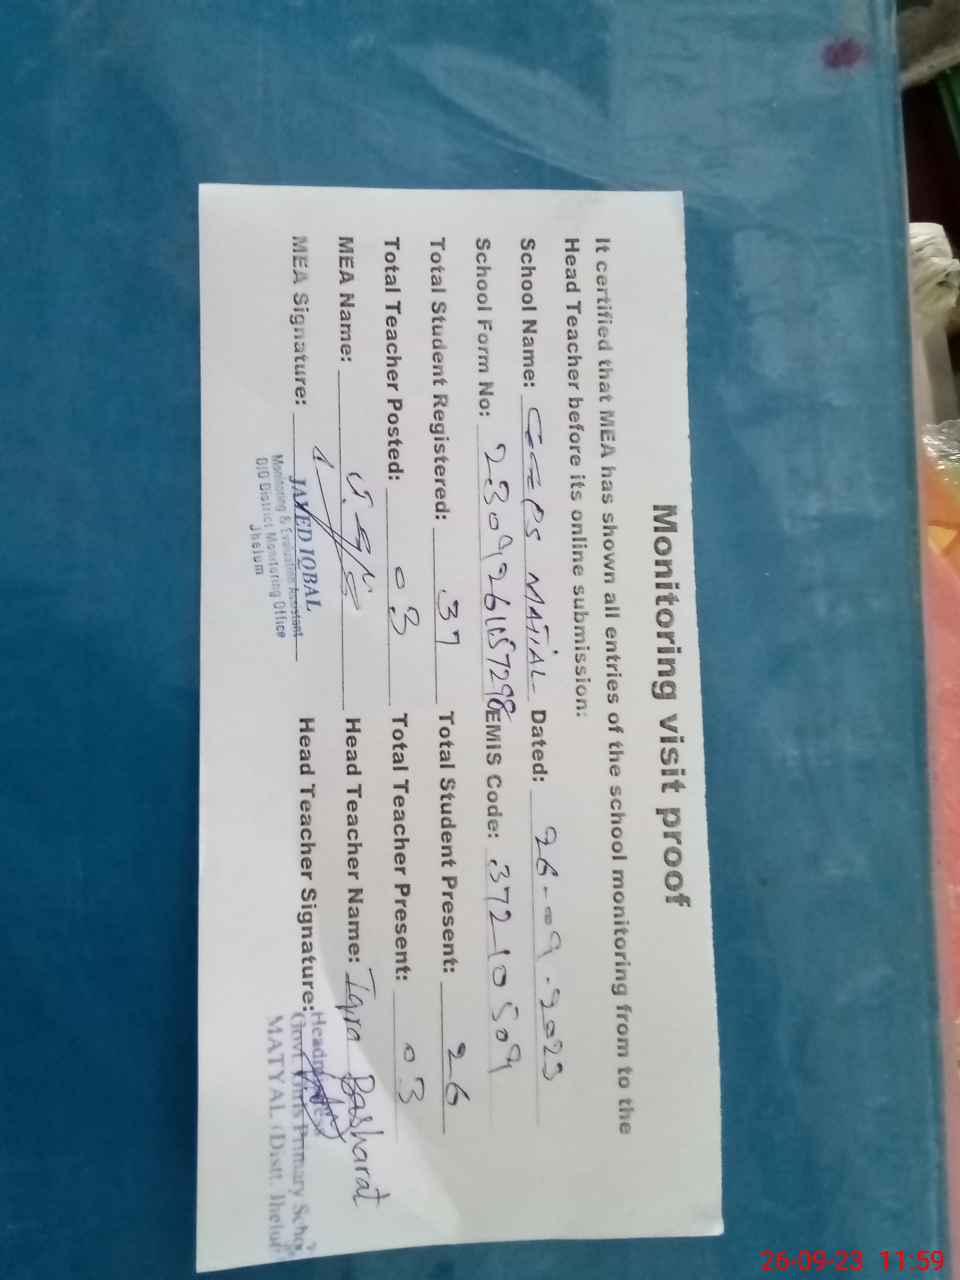 Monitoring visit proof
It certified that MEA has shown all entries of the school monitoring from to the
Head Teacher before its online submission:
School Name: GGPS MATIAL Dated: 26-09-2023
School Form No: EMIS Code: 37210509
Total Student Registered: 37 Total Student Present: 26
Total Teacher Posted: 03 Total Teacher Present: 03
MEA Name: Head Teacher Name: Iqra Basharat
MEA Signature: Head Teacher Signature:
JAVED IQBAL
Monitoring & Evaluation Assistant
O/O District Monitoring Office
Jhelum
Headmistress
Govt Girls Primary Scho
MATYAL (Distt. Jhelum
26-09-23 11:59